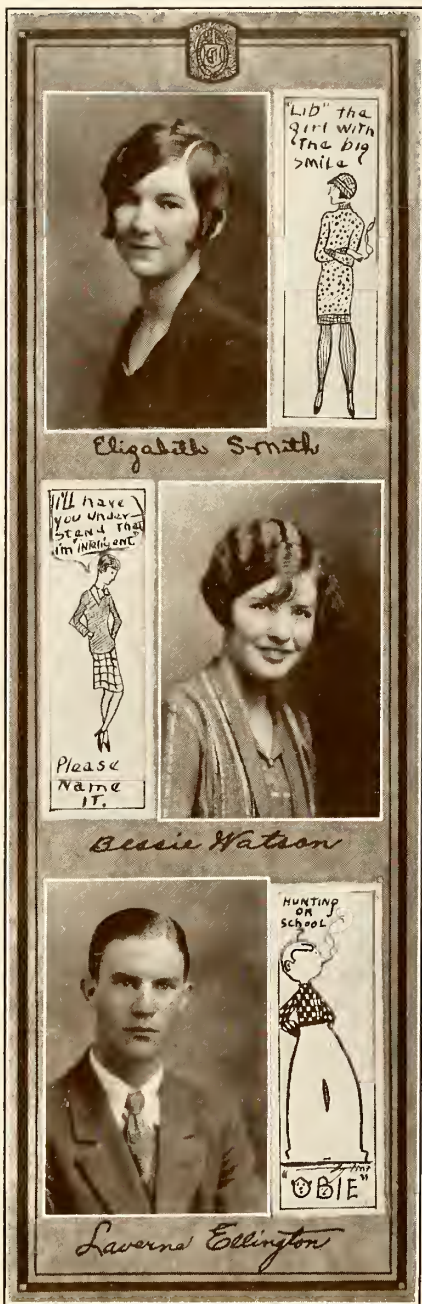 "LIB" the
girl with
The big
smile
Elizabeth Smith
I'll have
you under-
stand That
I'm INteligent"
Please
Name
IT.
Bessie Watson
HUNTING
OR
SCHOOL
"OBIE"
Laverne Ellington